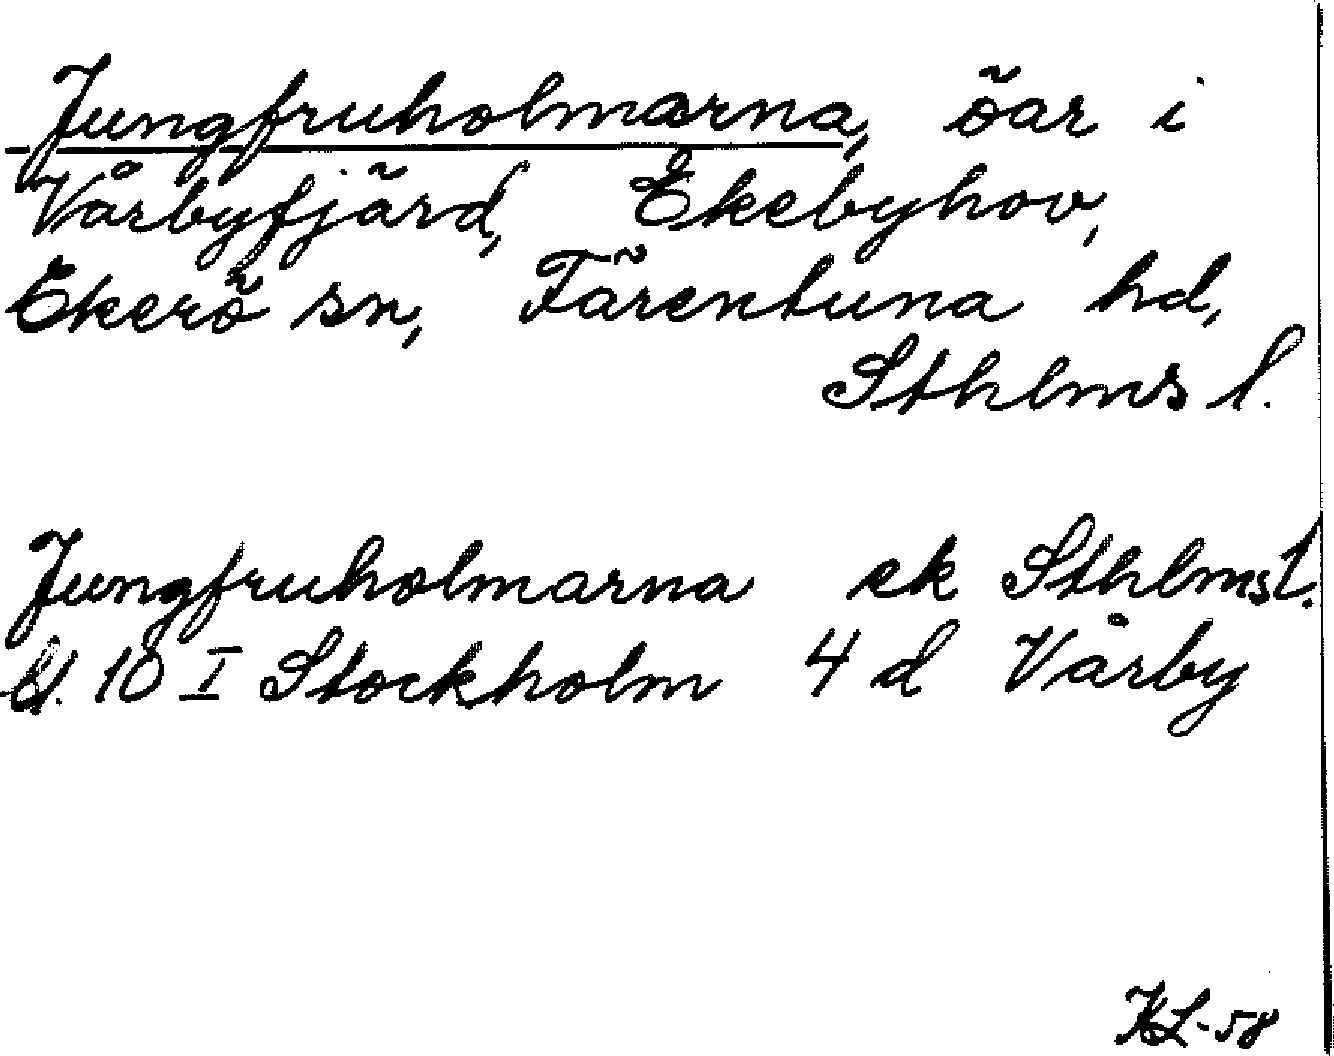 Jungfruholmarna, öar i
Vårbyfjärd, Ekebyhov,
Ekerö sn, Färentuna hd,
Sthlms l.
Jungfruholmarna ek Sthlms l.
bl. 10 I Stockholm 4 d Vårby
KL-58